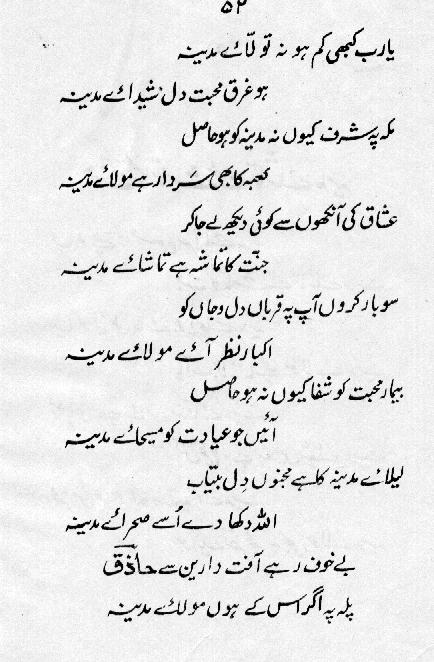 ۵۲
یارب کبھی کم ہو نہ تولّائے مدینہ
ہو غرق محبت دل شیدائے مدینہ
مکہ پہ شرف کیوں نہ مدینہ کو ہو حاصل
کعبہ کا بھی سردار ہے مولائے مدینہ
عشاق کی آنکھوں سے کوئی دیکھ لے جا کر
جنّت کا تماشہ ہے تماشائے مدینہ
سو بار کروں آپ پہ قرباں دل و جاں کو
اکبار نظر آئے مولائے مدینہ
بیمار محبت کو شفا کیوں نہ ہو حاصل
آئیں جو عیادت کو مسیحائے مدینہ
لیلائے مدینہ کا ہے مجنوں دل بیتاب
اللہ دکھا دے اُسے صحرائے مدینہ
بے خوف رہے آفت دارین سے حاذق
پلہ پہ اگر اس کے ہوں مولائے مدینہ